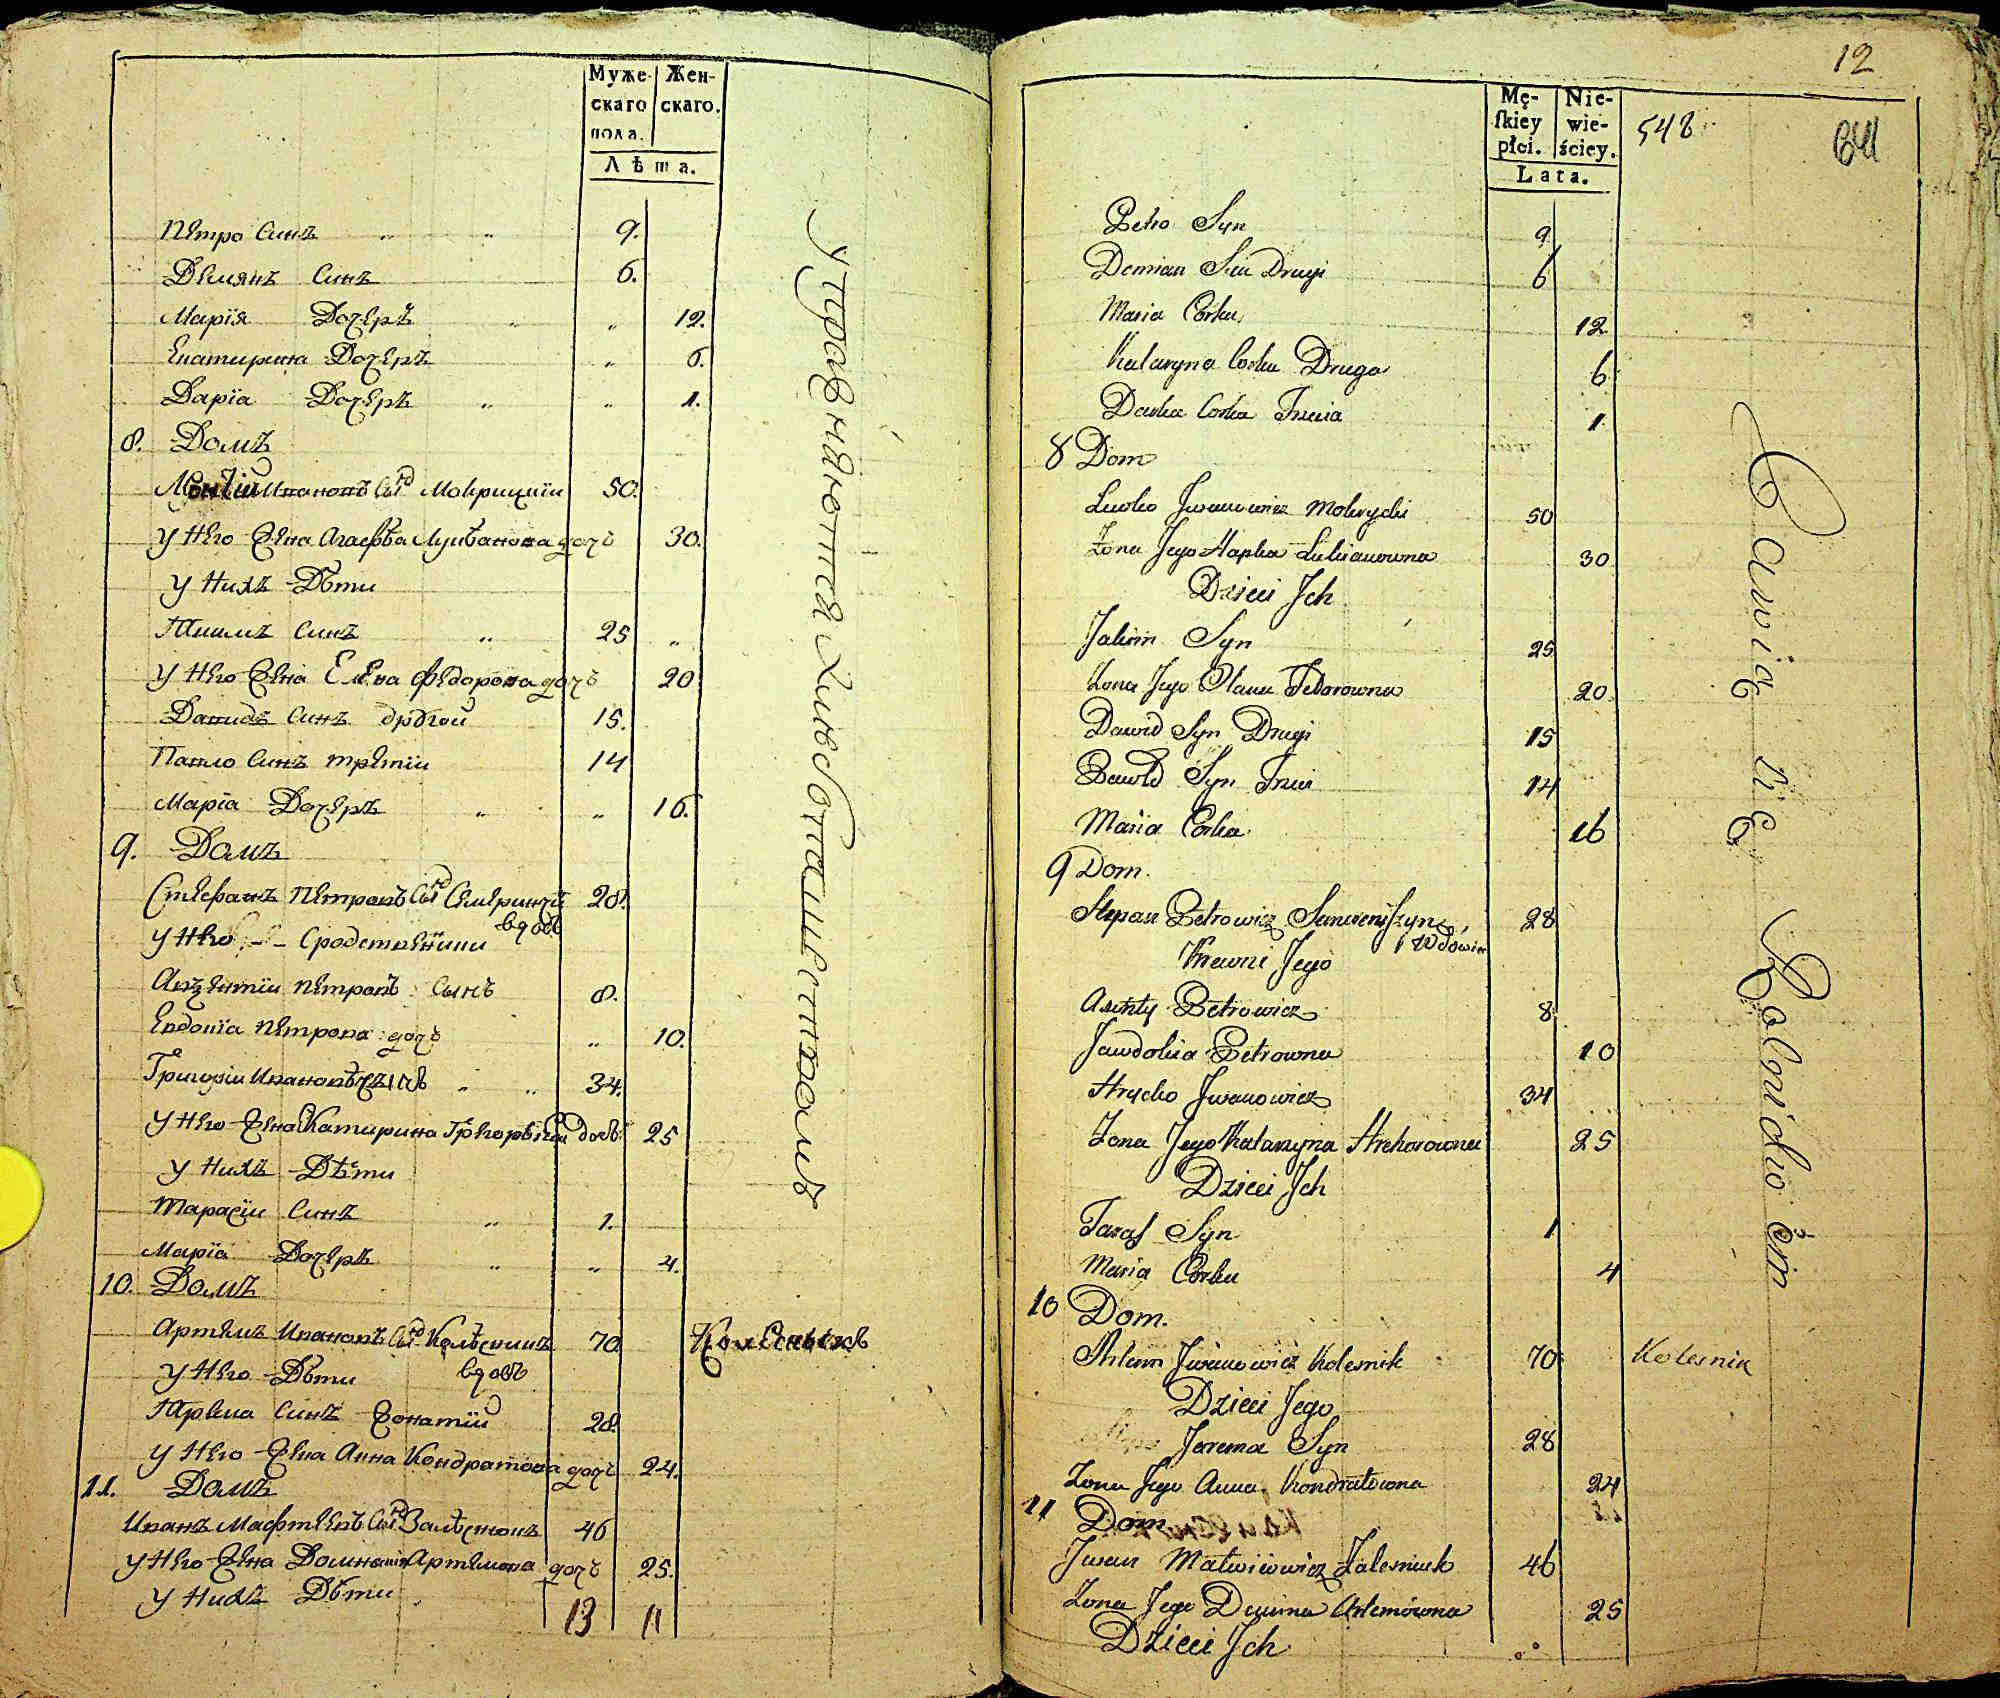 Муже-
скаго
пола.
Жен-
скаго.
Лѣта.
Петро Синъ 9.
Демянъ Синъ 6.
Марїя Дочеръ 12.
Екатирина Дочеръ 6.
Дарїа Дочеръ 1.
8. Домъ
Ивановъ Сынъ Мокрицкїи 50.
у Него Жена Агаефѣа Лукѣанова дочъ 30.
у Нихъ Дѣти
Якимъ Синъ 25
у Него Жена Елена Федорова дочъ 20
Давидъ Синъ другои 15.
Павло Синъ третїи 14
Марїа Дочеръ 16.
9. Домъ
Стефанъ Петровъ Сынъ 28.
вдовъ
у Него Сродственники
Авксентїи Петровъ Сынъ 8.
Евдокїа Петрова дочъ 10.
Григорїи Ивановъ Сынъ 34.
у Него Жена Катирина дочъ 25
у Нихъ Дѣти
Тарасїи Синъ 1.
Марїа Дочеръ 4.
10. Домъ
Артемъ Ивановъ Сынъ Колѣсникъ 70.
вдовъ
у Него Дѣти
Ярема Синъ Жонатїи 28.
у Него Жена Анна Кондратова дочъ 24.
11. Домъ
Иванъ Мафтеевъ Сынъ Залѣснюкъ 46
у Него Жена Артемова дочъ 25.
у Нихъ Дѣти
13 11
Управнїаются Хлѣбопашествомъ
Колесныкъ
12
Mę-
skiey
płci.
Nie-
wie-
ściey.
Lata.
548
641
Petro Syn 9
Demian Syn Drugi 6
Maria Corka 12
Kataryna Corka Druga 6
Darka Corka Trzecia 1
8 Dom
Lewko Jwanowicz Mokrycki 50
Zona Jego Hapka Lukianowna 30
Dzieci Jch
Jakim Syn 25
Zona Jego Olana Fedorowna 20
Dawid Syn Drugi 15
Pawlo Syn Trzeci 14
Maria Corka 16
9 Dom.
Stepan Petrowicz 28
Wdowiec
Krewni Jego
Petrowicz 8
Jawdokia Petrowna 10
Hrycko Jwanowicz 34
Zona Jego Katarzyna Hrehorowna 25
Dzieci Jch
Taras Syn 1
Maria Corka 4
10 Dom.
Artem Jwanowicz Kolesnik 70
Dzieci Jego
Jerema Syn 28
Zona Jego Anna Kondratowna 24
11 Dom
Jwan Matwiiowicz Zalesniuk 46
Zona Jego Domina Artemowna 25
Dzieci Jch
Bawią się Rolnictwem
Kolesnik